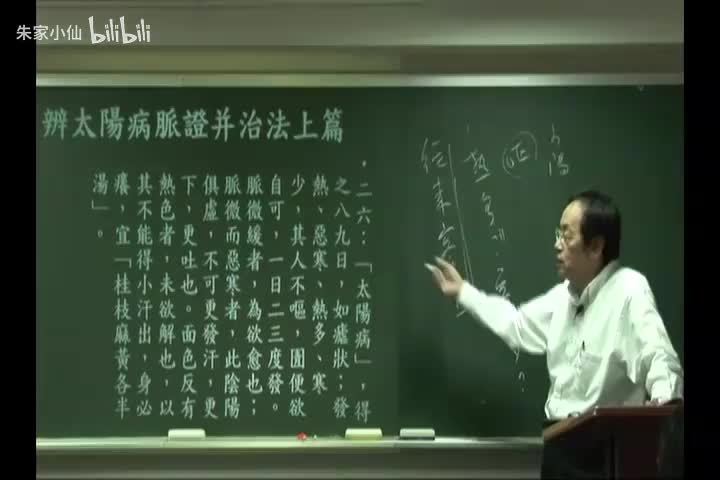 朱家小仙 bilibili
辨太陽病脈證并治法上篇
二六：「太陽病」，得
之八九日，如瘧狀；發
熱、惡寒、熱多、寒
少，其人不嘔，圊便欲
自可，一日二三度發。
脈微緩者，為欲愈也；
脈微而惡寒者，此陰陽
俱虛，不可更發汗，更
下，更吐也。面色反有
熱色者，未欲解也，以
其不能得小汗出，身必
癢，宜「桂枝麻黃各半
湯」。